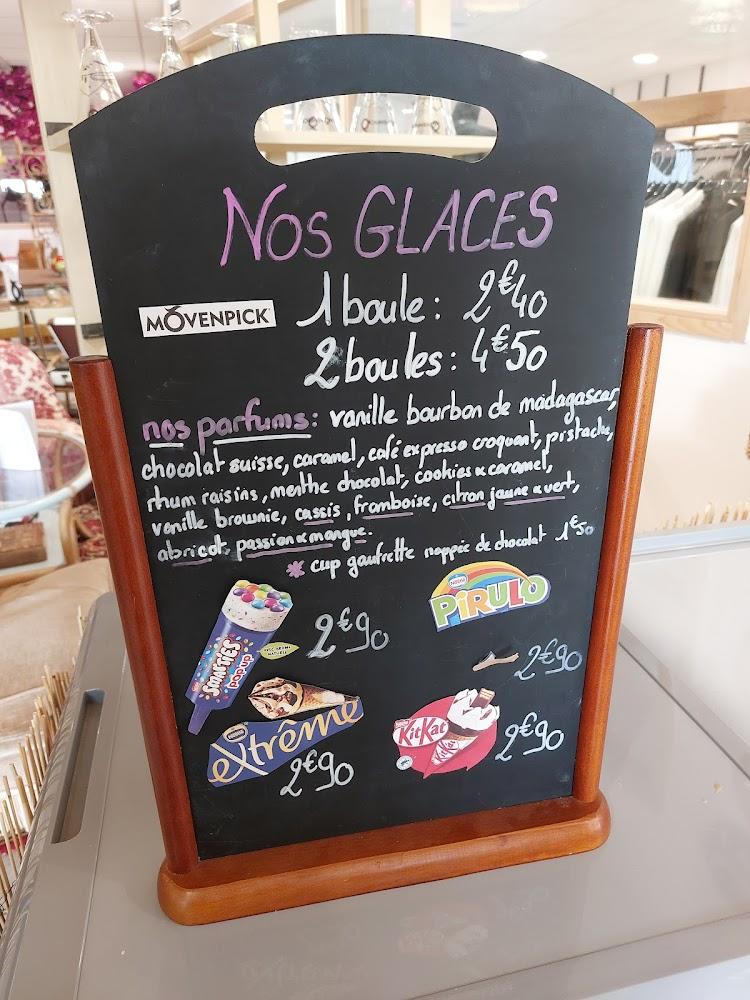 Nos GLACES
MÖVENPICK
1 boule : 2€40
2 boules : 4€50
nos parfums : vanille bourbon de madagascar,
chocolat suisse, caramel, café expresso croquant, pistache,
rhum raisins, menthe chocolat, cookies & caramel,
vanille brownie, cassis, framboise, citron jaune & vert,
abricot, passion & mangue.
* cup gaufrette nappée de chocolat 1€50
Nestlé
PiRULO
SMARTIES
pop up
2€90
2€90
Nestlé
extrême
2€90
KitKat
KitKat
2€90